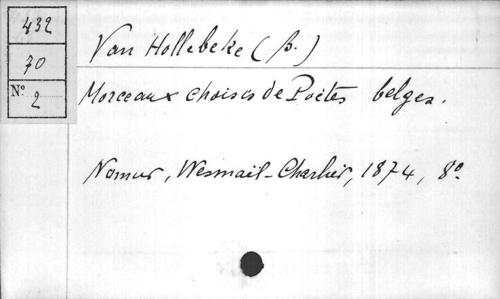 432
70
Nº 2
Van Hollebeke (B.)
Morceaux choisis de Poètes belges.
Namur, Wesmail-Charlier, 1874, 8º